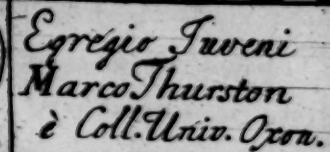 Egregio Juveni
Marco Thurston
è Coll. Univ. Oxon.